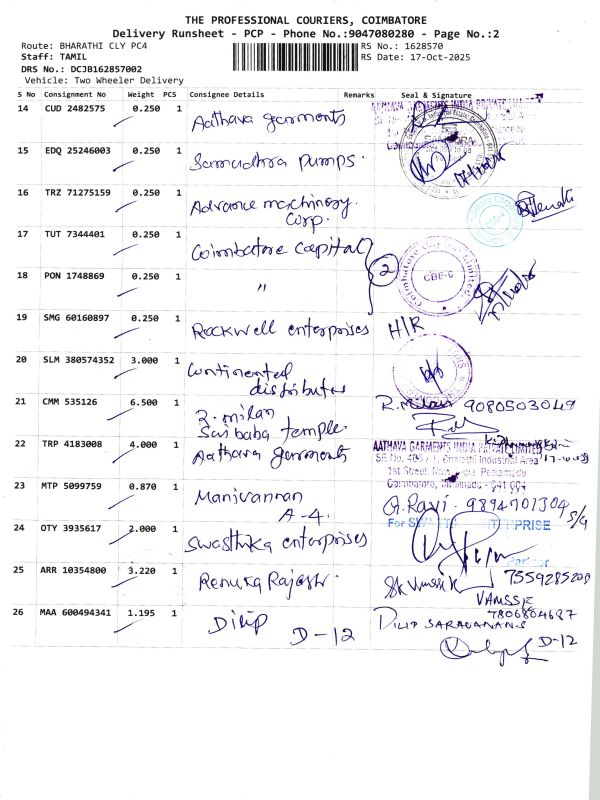 THE PROFESSIONAL COURIERS, COIMBATORE
Delivery Runsheet - PCP - Phone No.:9047080280 - Page No.:2
Route: BHARATHI CLY PC4
RS No.: 1628570
Staff: TAMIL
RS Date: 17-Oct-2025
DRS No.: DCJB162857002
Vehicle: Two Wheeler Delivery
S No Consignment No Weight PCS Consignee Details Remarks Seal & Signature
14 CUD 2482575 0.250 1 Aathava garments
AATHAVA GARMENTS INDIA PRIVATE
15 EDQ 25246003 0.250 1 Samudhra pumps.
16 TRZ 71275159 0.250 1 Advance machinery
Corp.
17 TUT 7344401 0.250 1 Coimbatore capital
2
Coimbatore Capital Limited
CBE-6
18 PON 1748869 0.250 1 "
19 SMG 60160897 0.250 1 Rockwell enterprises H/R
20 SLM 380574352 3.000 1 Continented
distributes
21 CMM 535126 6.500 1 R. milan
Sai baba temple.
R. Milan 9080503049
22 TRP 4183008 4.000 1 Aathava garments
AATHAVA GARMENTS INDIA PRIVATE LIMITED
Bharathi Industrial Area
1st Street,
Coimbatore, - 641 004
23 MTP 5099759 0.870 1 Manivannan
A-4.
G. Ravi - 9894701304 S/G
24 OTY 3935617 2.000 1 Swasthika enterprises
For ENTERPRISE
Partner
25 ARR 10354800 3.220 1 Renuka Rajesh.
7559285208
VAMSSE
26 MAA 600494341 1.195 1 Dilip
D-12
7806804687
DILIP SARAVANANS
D-12